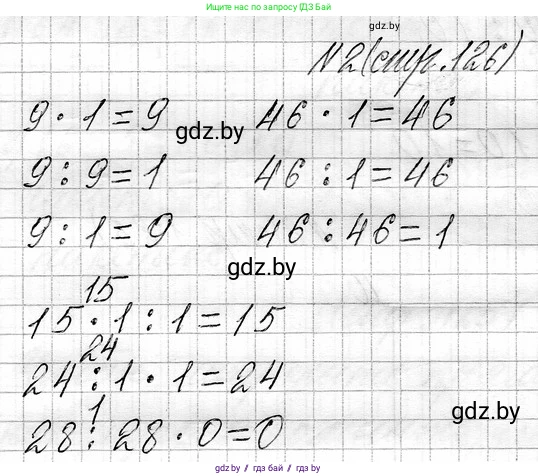 Ищите нас по запросу ГДЗ Бай
gdz.by
N2(стр.126)
9 · 1 = 9 46 · 1 = 46
gdz.by
9 : 9 = 1 46 : 1 = 46
9 : 1 = 9 46 : 46 = 1
gdz.by
15
15 · 1 : 1 = 15
24
24 : 1 · 1 = 24
gdz.by
1
28 : 28 · 0 = 0
gdz.by / гдз бай / gdz.by